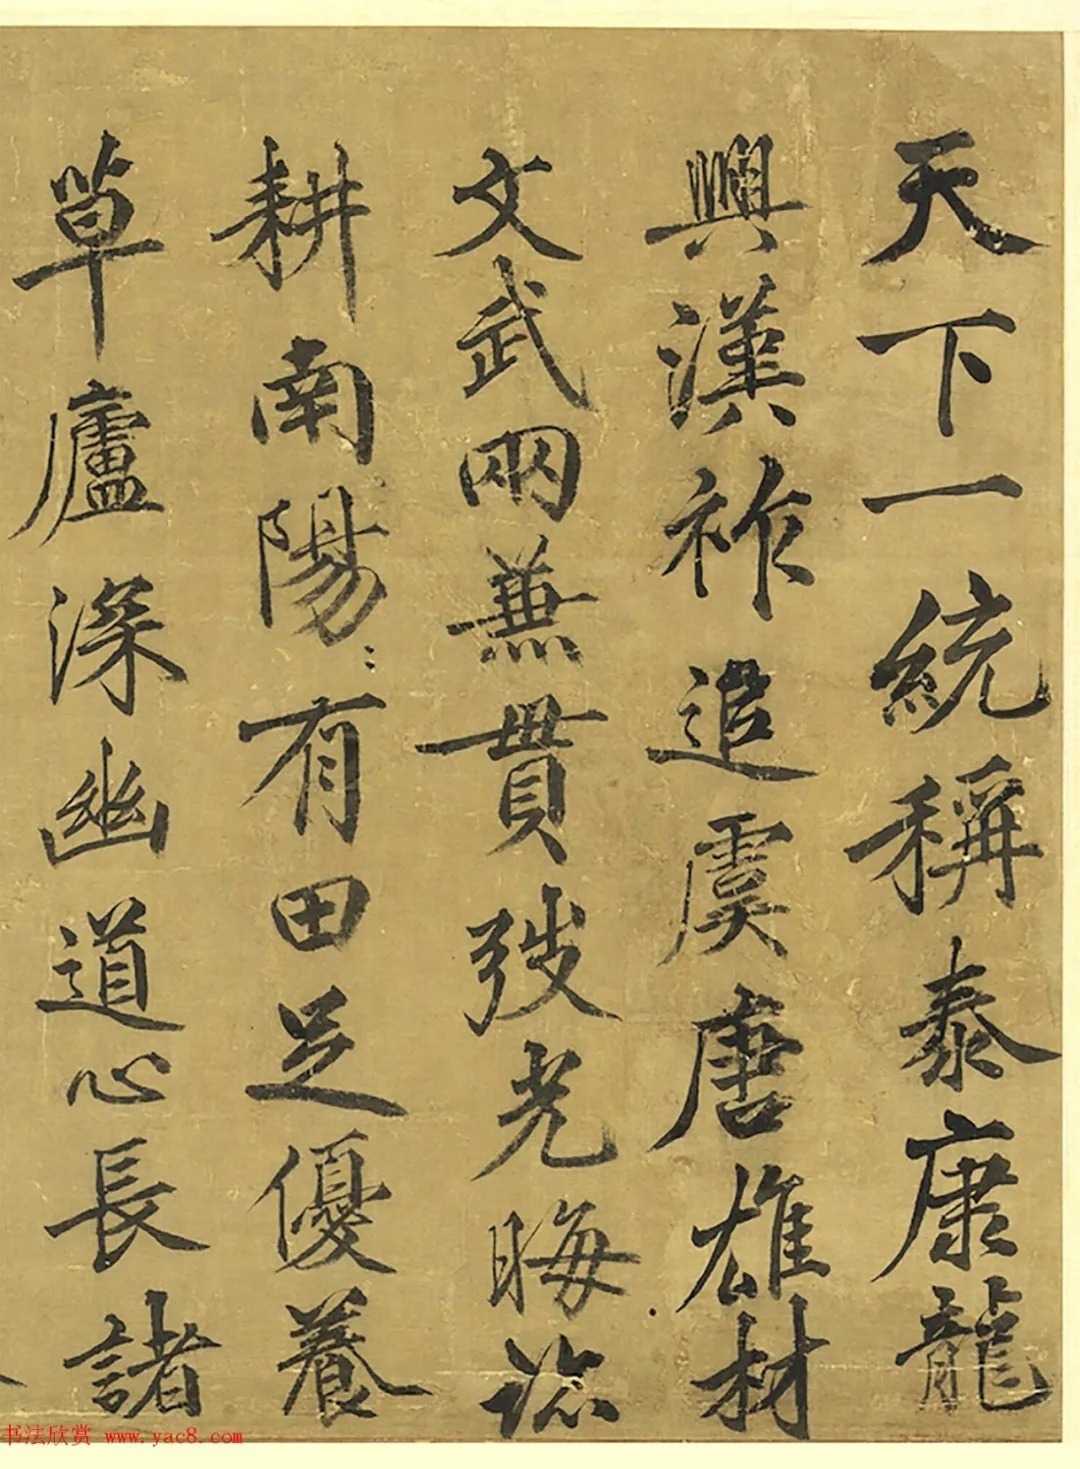 天下一統稱泰康龍
興漢祚追虞唐雄材
文武兩兼貫弢光晦跡
耕南陽有田足優養
草廬深幽道心長諸
书法欣赏 www.yac8.com